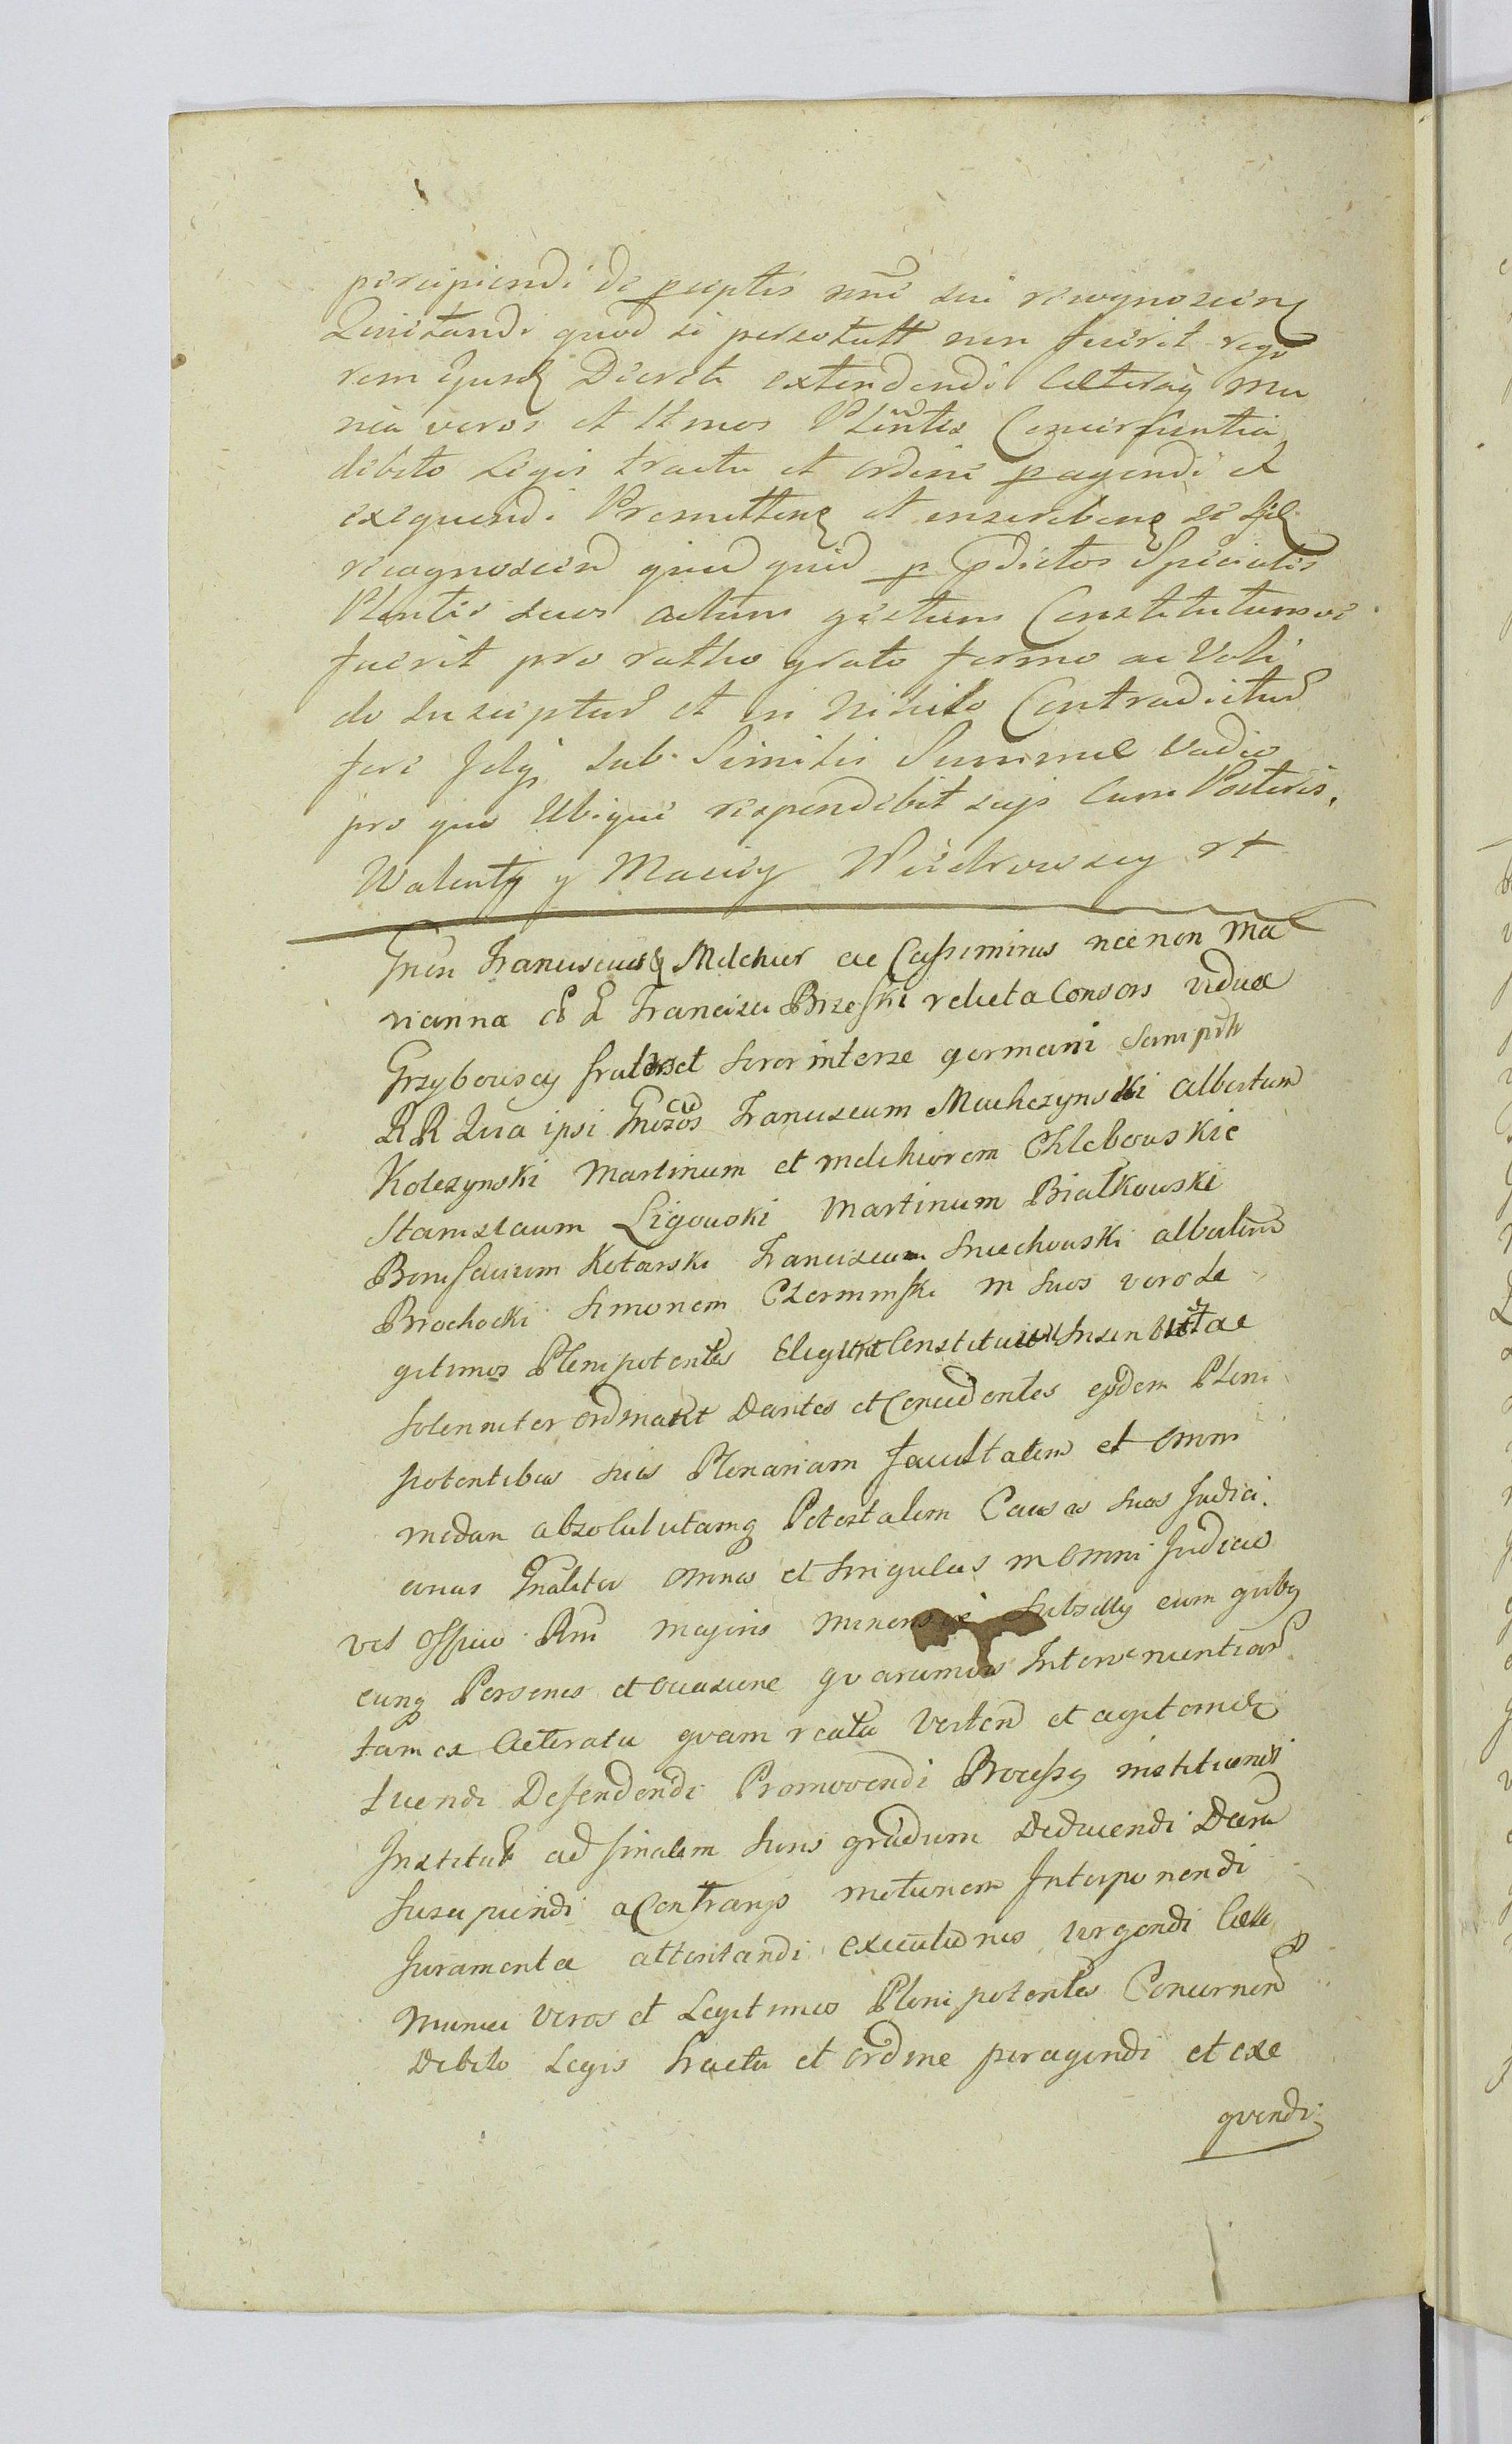 percipiendi de pceptis nne sui recognoscen
Quietandi quod si persolutt non fuerit rego
rem Ejusd Decreti extendendi Caeteraq mu
nia veros et Ltmos Plentes Concernentia
debito Legis tractu et ordine pagendi et
exequendi Promittens et inscribens se
recognoscend quid quid p pdictos Speciales
Plentes suos actum gestum Constitutumve
fuerit pro ratho grato firmo ac Vali
do Suscipturd et in Nihilo Contradicturd
fore sub Similis Summae Vadio
pro quo Ubique respondebit suijs Cum Posteris.
Walenty y Maciey Wiechrowscy rt
Gnsi Franciscus Melchior ac Cassimirus nec non Ma
rianna Francisci Brzeski relicta Consors vidua
Grzybowscy fratres et Soror interse germani
RR Qua ipsi Gnosos Franciscum Machczynski albertum
Kolczynski Martinum et melchiorem Chlebowskie
Stanislaum Ligowski Martinum Białkowski
Bonifacium Kotarski Franciscum Sniechowski albertum
Brochocki Simonem Czerminski in Suos veros Le
gitimos Plenipotentes Eligunt Constituunt Inscribunt ac
Solenniter ordinant Dantes et Concedentes ejsdem Pleni
potentibus suis Plenariam facultatem et omni
modam absolulutamq Potestatem Causas suas Judici
arias Gnaliter omnes et Singulas in omni Judicio
vel officio Rni majoris minorisve Subselly cum quibq
cunq Personis et occasione quarumvis Intervenientiard
tam ex Acteratu quam reatu Verten et agitomd
tuendi Defendendi Promovendi Processq institionis
Institut ad finalem Juris gradum Deducendi Dcum
Suscipiendi a Contrarijs motionem Interponendi
Juramenta attentandi executiones urgendi Caet
munia veros et Legitimos Plenipotentes Concernend
Debito Legis tractu et ordine peragendi et exe
quendi